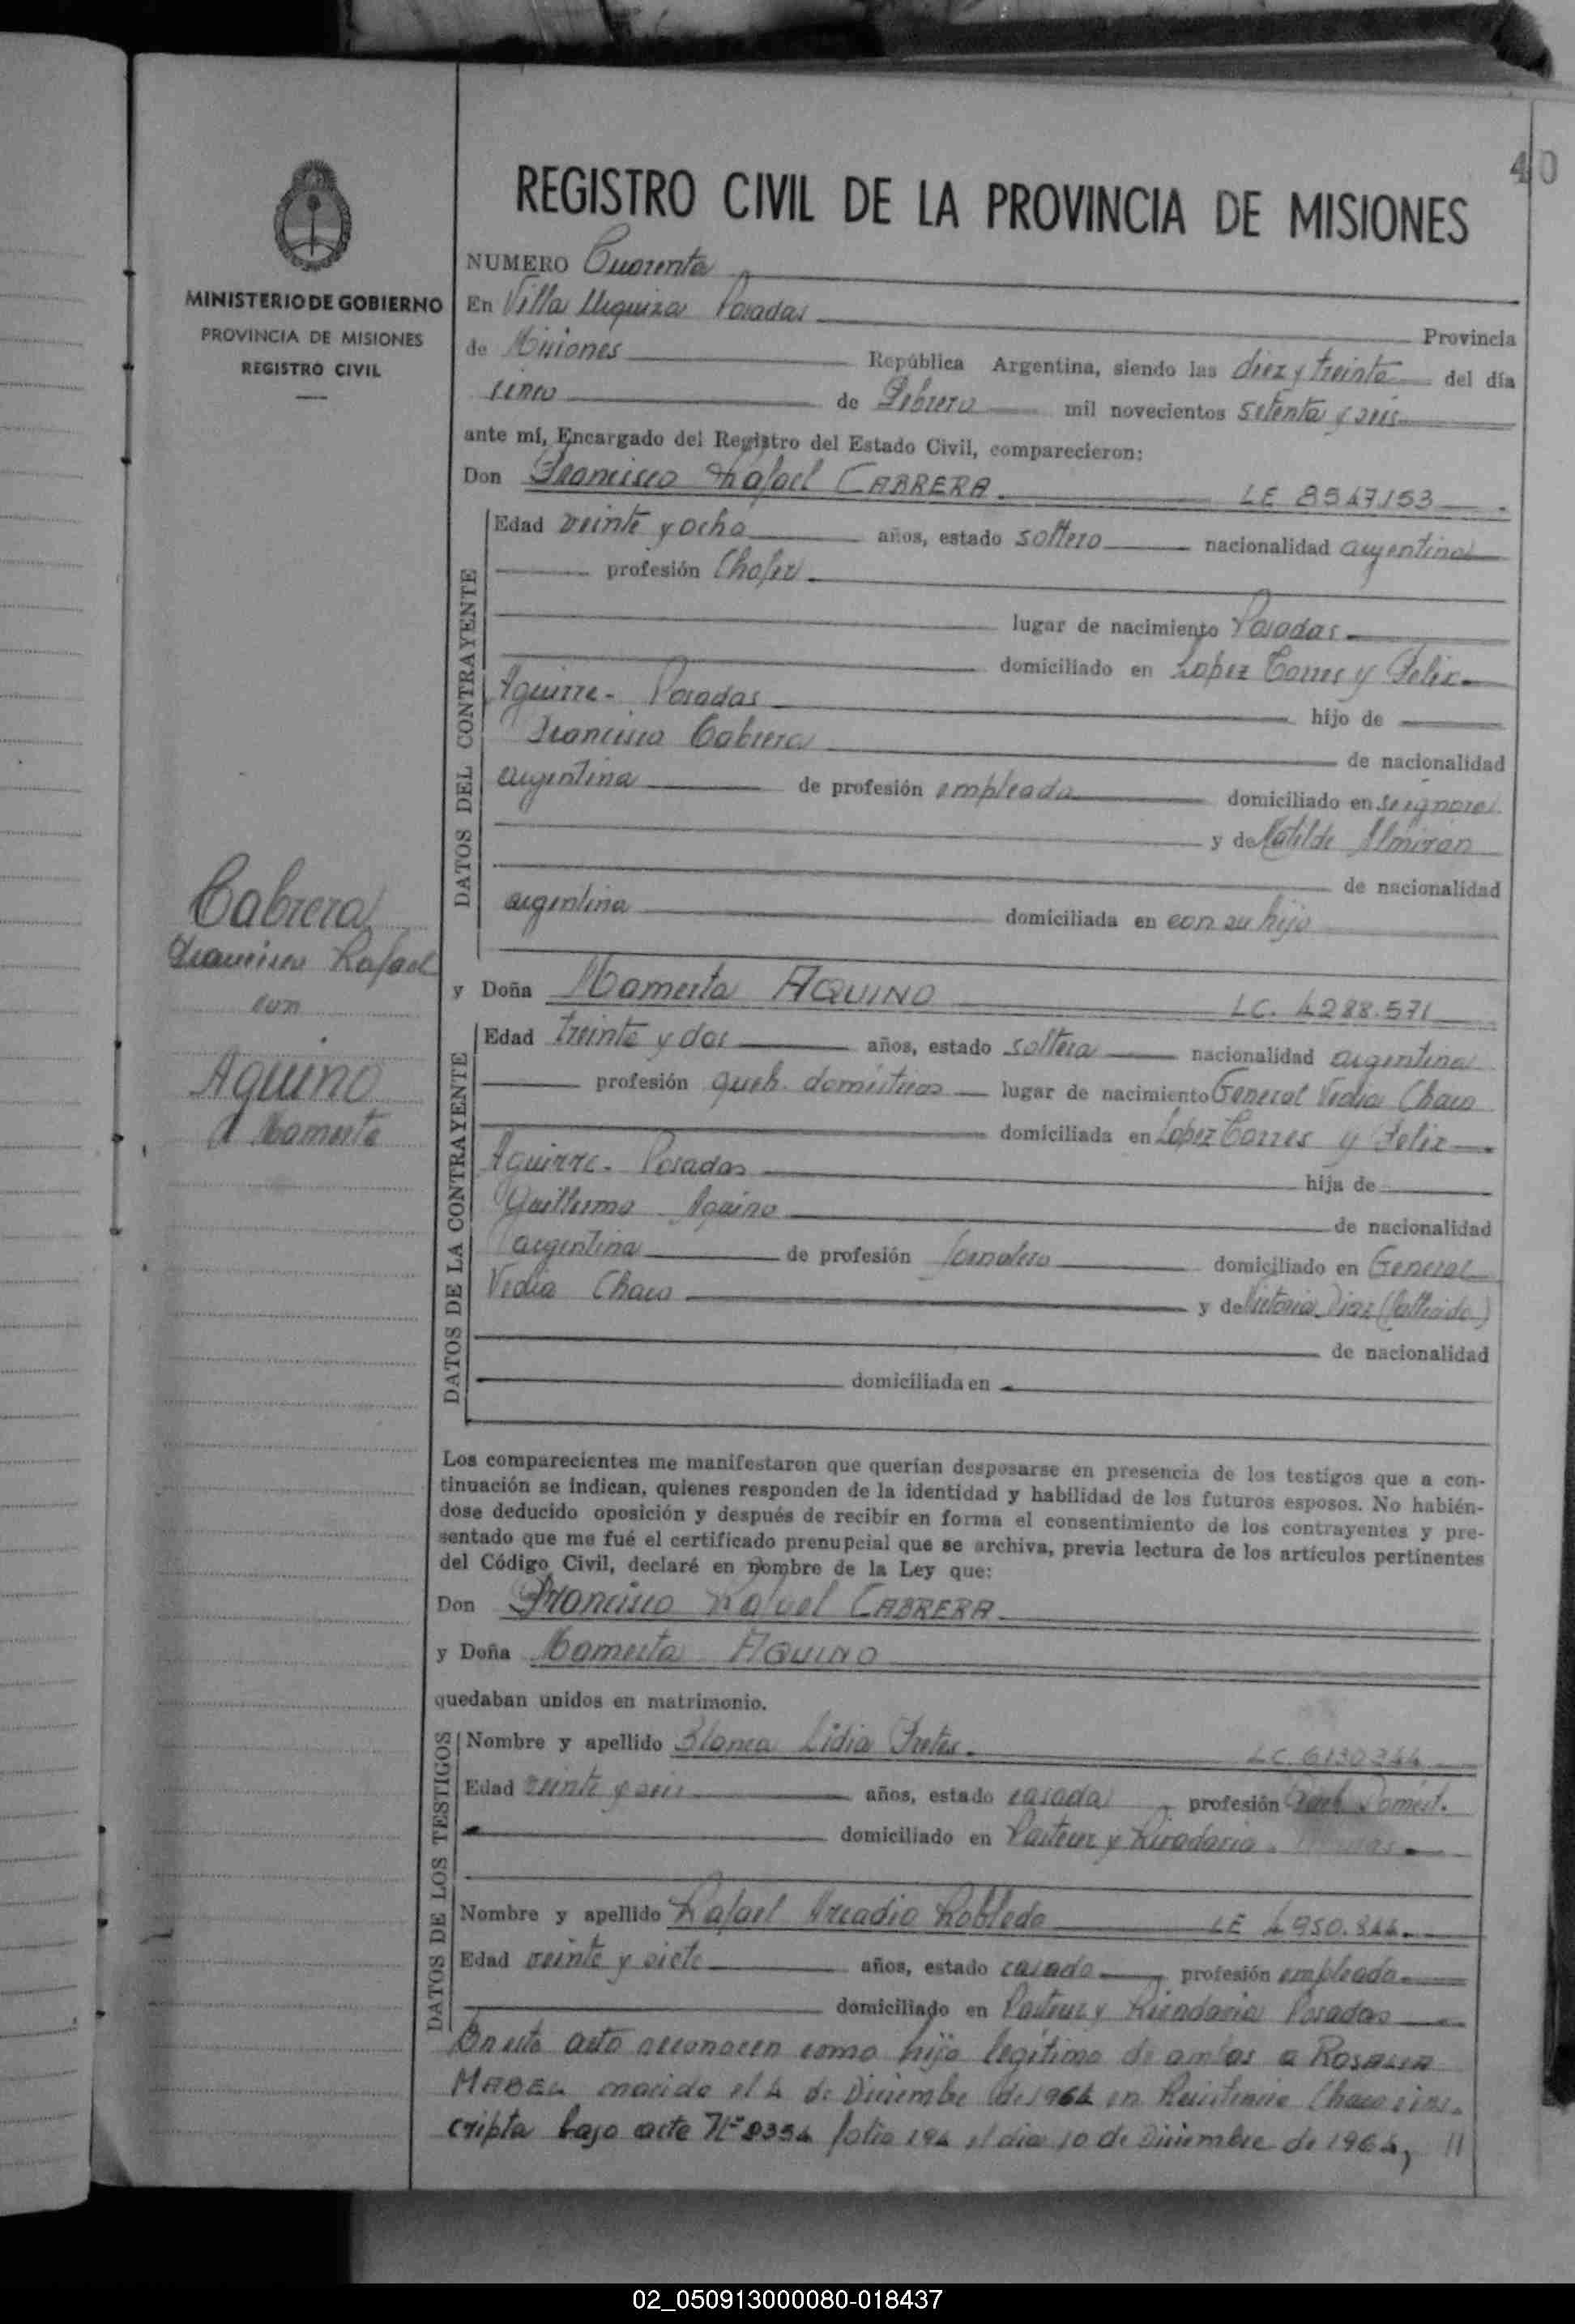 40
REGISTRO CIVIL DE LA PROVINCIA DE MISIONES
MINISTERIO DE GOBIERNO
PROVINCIA DE MISIONES
REGISTRO CIVIL
NUMERO Cuarenta
En Villa Urquiza Posadas Provincia
de Misiones República Argentina, siendo las diez y treinta del día
cinco de Febrero mil novecientos setenta y seis
ante mí, Encargado del Registro del Estado Civil, comparecieron:
Don Francisco Rafael CABRERA. LE 8547153
DATOS DEL CONTRAYENTE
Edad veinte y ocho años, estado soltero nacionalidad argentina
profesión Chofer
lugar de nacimiento Posadas
domiciliado en Lopez Torres y Felix
Aguirre - Posadas hijo de
Francisco Cabrera de nacionalidad
argentina de profesión empleado domiciliado en se ignora
y de Matilde Almiron
de nacionalidad
argentina domiciliada en con su hijo
Cabrera
Francisco Rafael
con
Aquino
Mamerta
y Doña Mamerta AQUINO LC. 4288.571
DATOS DE LA CONTRAYENTE
Edad treinta y dos años, estado soltera nacionalidad argentina
profesión queh. domésticos lugar de nacimiento General Vedia Chaco
domiciliada en Lopez Torres y Felix
Aguirre - Posadas hija de
Guillermo Aquino de nacionalidad
argentina de profesión Jornalero domiciliado en General
Vedia Chaco y de Victoria Diaz (fallecida)
de nacionalidad
domiciliada en
Los comparecientes me manifestaron que querían desposarse en presencia de los testigos que a con-
tinuación se indican, quienes responden de la identidad y habilidad de los futuros esposos. No habién-
dose deducido oposición y después de recibir en forma el consentimiento de los contrayentes y pre-
sentado que me fué el certificado prenupcial que se archiva, previa lectura de los artículos pertinentes
del Código Civil, declaré en nombre de la Ley que:
Don Francisco Rafael CABRERA
y Doña Mamerta AQUINO
quedaban unidos en matrimonio.
DATOS DE LOS TESTIGOS
Nombre y apellido Blanca Lidia Fretes. LC 6130344
Edad veinte y seis años, estado casada profesión Queh Domést.
domiciliado en Pasteur y Rivadavia.
Nombre y apellido Rafael Arcadio Robledo LE 4950.844
Edad veinte y siete años, estado casado profesión empleado
domiciliado en Pasteur y Rivadavia Posadas
En este acto reconocen como hijo legítimo de ambos a ROSALIA
MABEL nacida el 4 de Diciembre de 1964 en Resistencia Chaco e ins-
cripta bajo acta Nº 8354 folio 194 el dia 10 de Diciembre de 1964, //
02_050913000080-018437